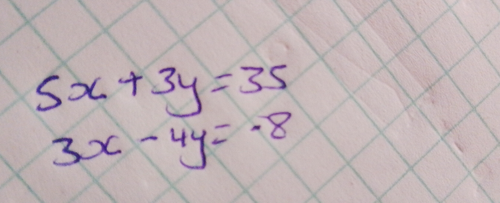 5x + 3y = 35
3x - 4y = -8